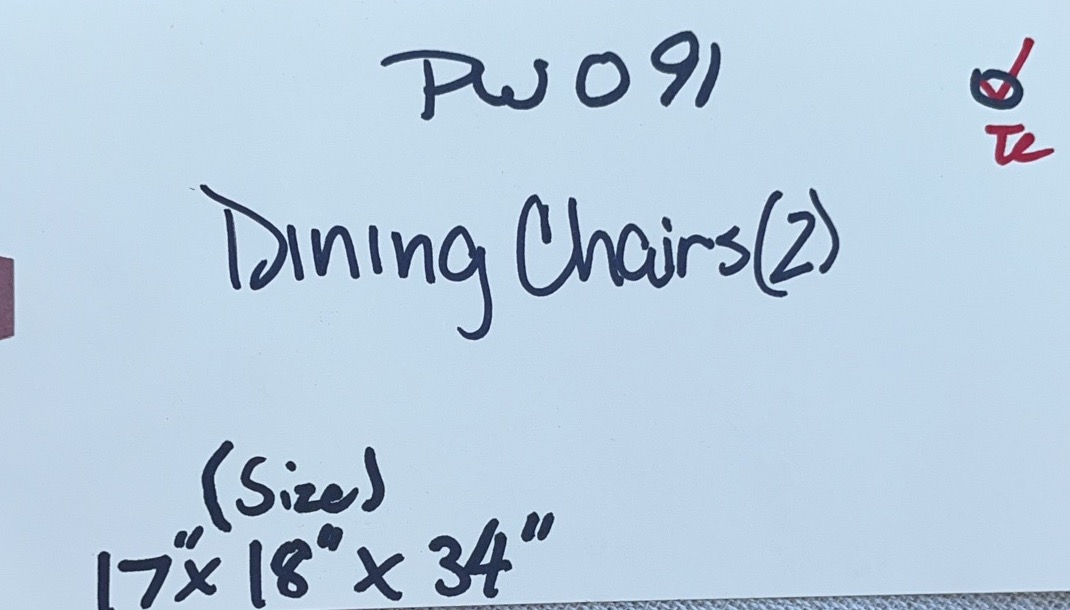 PW091
Dining Chairs (2)
(Size)
17" x 18" x 34"